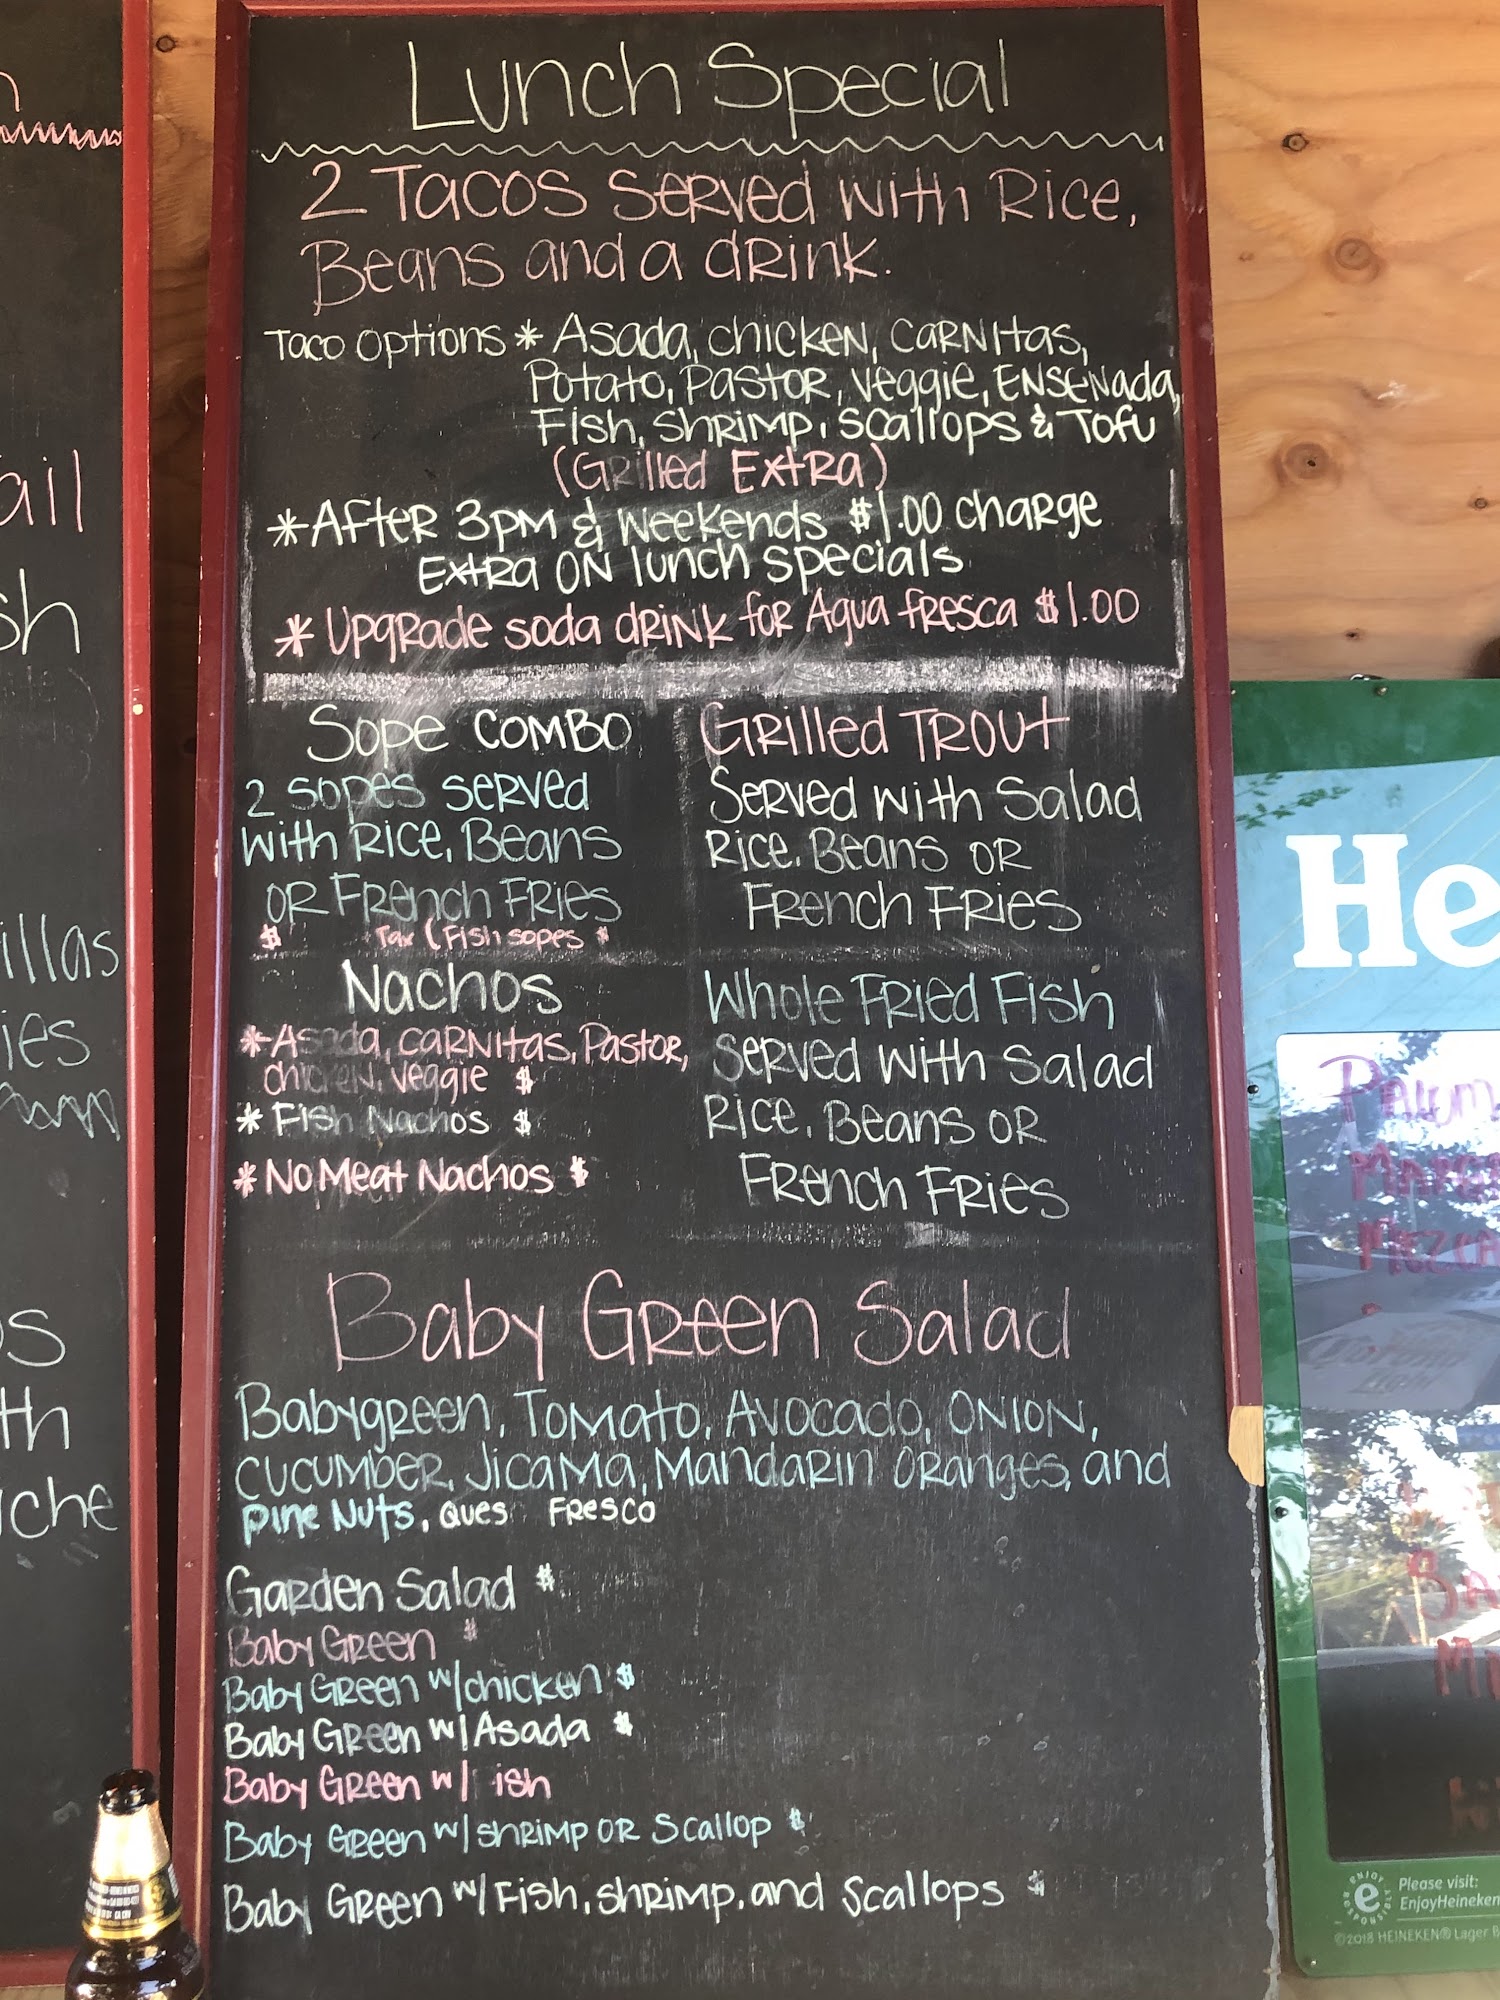 Lunch Special
2 Tacos served with Rice,
Beans and a drink.
Taco Options * Asada, chicken, carnitas,
Potato, Pastor, Veggie, Ensenada,
Fish, shrimp, scallops & Tofu
(Grilled Extra)
*After 3pm & Weekends $1.00 charge
Extra on lunch specials
*Upgrade soda drink for Agua fresca $1.00
Sope Combo
2 sopes served
with Rice, Beans
or French Fries
$ + Tax (Fish sopes $
Nachos
*Asada, carnitas, Pastor,
chicken, veggie $
*Fish Nachos $
*No Meat Nachos $
Grilled Trout
Served with Salad
Rice, Beans or
French Fries
Whole Fried Fish
served with salad
Rice, Beans or
French Fries
Baby Green Salad
Babygreen, Tomato, Avocado, Onion,
cucumber, Jicama, Mandarin oranges, and
pine Nuts, Ques Fresco
Garden Salad $
Baby Green $
Baby Green w/chicken $
Baby Green w/Asada $
Baby Green w/ ish
Baby Green w/shrimp or Scallop $
Baby Green w/Fish, shrimp, and Scallops $
ail
sh
illas
ies
os
th
iche
He
Palom
Marg
Mezca
ENJOY
RESPONSIBLY
Please visit:
EnjoyHeineken
©2018 HEINEKEN® Lager B